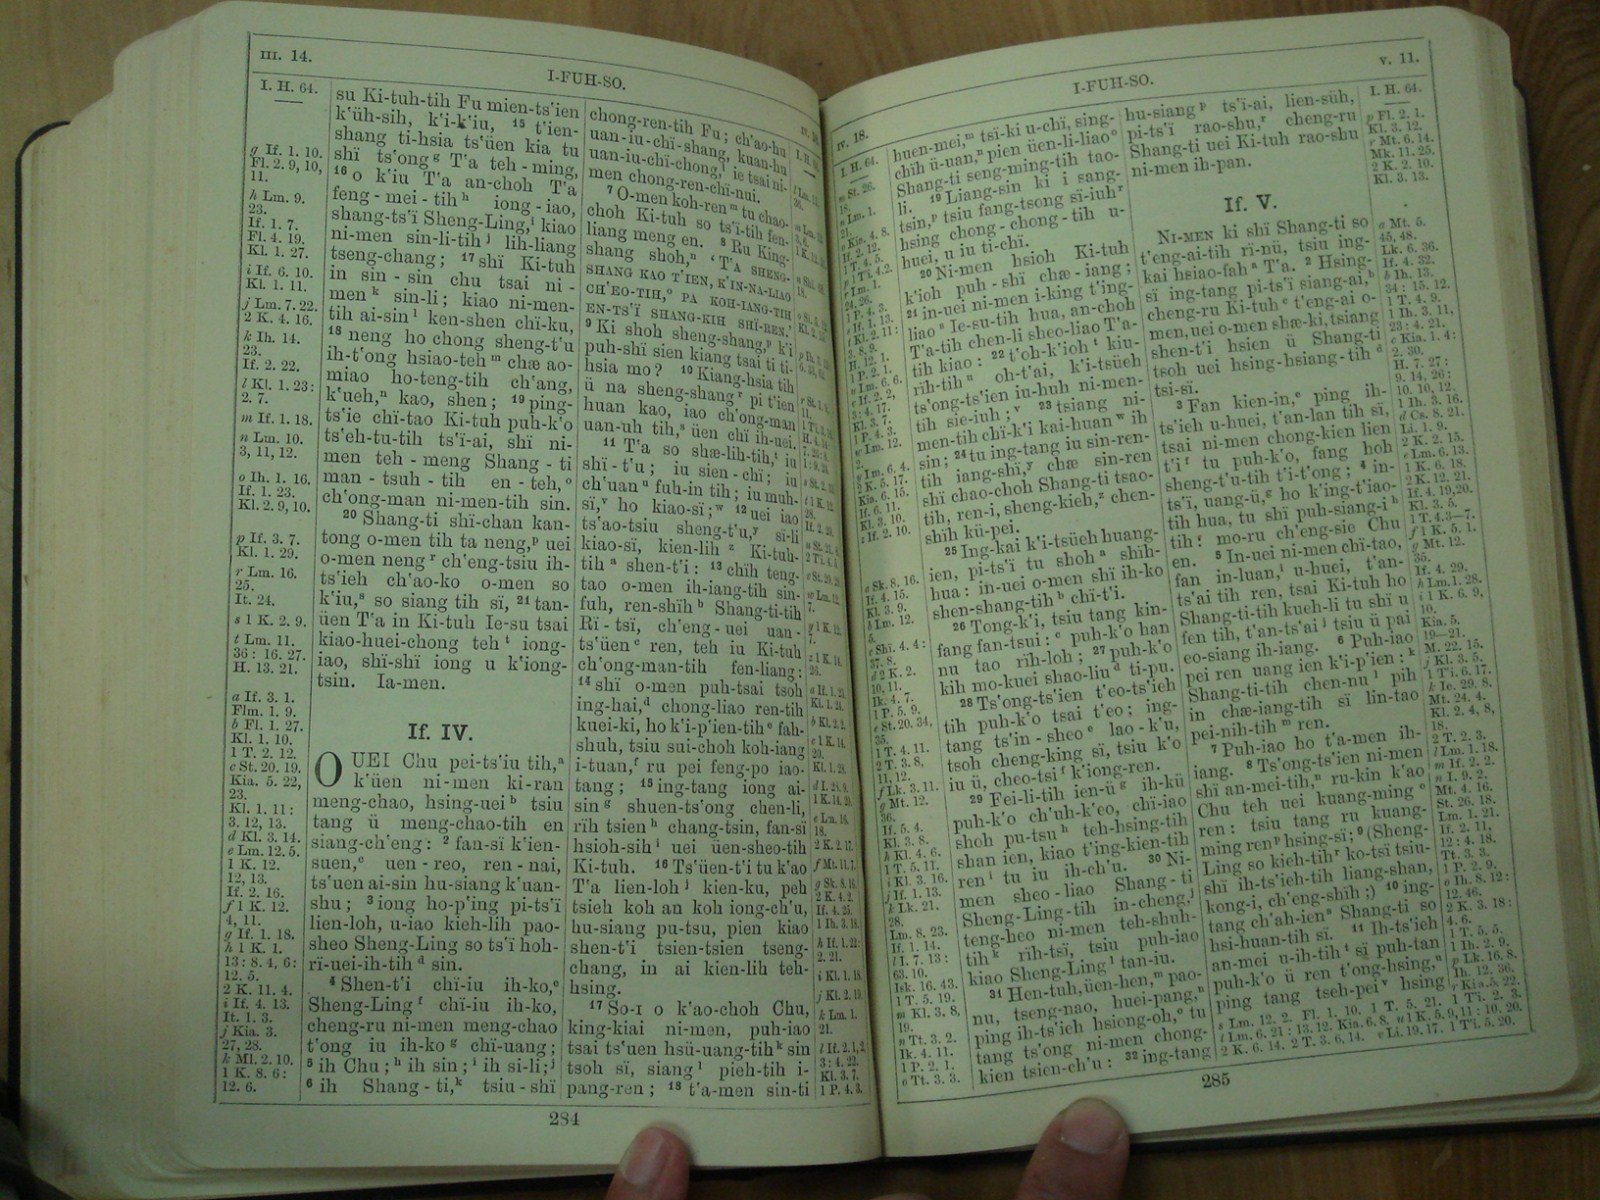 III. 14.
I-FUH-SO.
I. H. 64.
g If. 1. 10.
Fl. 2. 9, 10,
11.
h Lm. 9.
23.
If. 1. 7.
Fl. 4. 19.
Kl. 1. 27.
i If. 6. 10.
Kl. 1. 11.
j Lm. 7. 22.
2 K. 4. 16.
k Ih. 14.
23.
If. 2. 22.
l Kl. 1. 23:
2. 7.
m If. 1. 18.
n Lm. 10.
3, 11, 12.
o Ih. 1. 16.
If. 1. 23.
Kl. 2. 9, 10.
p If. 3. 7.
Kl. 1. 29.
r Lm. 16.
25.
It. 24.
s 1 K. 2. 9.
t Lm. 11.
36: 16. 27.
H. 13. 21.
a If. 3. 1.
Flm. 1. 9.
b Fl. 1. 27.
Kl. 1. 10.
1 T. 2. 12.
c St. 20. 19.
Kia. 5. 22,
23.
Kl. 1. 11:
3. 12, 13.
d Kl. 3. 14.
e Lm. 12. 5.
1 K. 12.
12, 13.
If. 2. 16.
f 1 K. 12.
4, 11.
g If. 1. 18.
h 1 K. 1.
13: 8. 4, 6:
12. 5.
2 K. 11. 4.
i If. 4. 13.
It. 1. 3.
j Kia. 3.
27, 28.
k Ml. 2. 10.
1 K. 8. 6:
12. 6.
su Ki-tuh-tih Fu mien-ts'ien
k'üh-sih, k'i-k'iu, 15 t'ien-
shang ti-hsia ts'üen kia tu
shï ts'ong g T'a teh-ming,
16 o k'iu T'a an-choh T'a
feng-mei-tih h iong-iao,
shang-ts'ï Sheng-Ling, i kiao
ni-men sin-li-tih j lih-liang
tseng-chang; 17 shï Ki-tuh
in sin-sin chu tsai ni-
men k sin-li; kiao ni-men-
tih ai-sin l ken-shen chï-ku,
18 neng ho chong sheng-t'u
ih-t'ong hsiao-teh m chæ ao-
miao ho-teng-tih ch'ang,
k'ueh, n kao, shen; 19 ping-
ts'ie chï-tao Ki-tuh puh-k'o
ts'eh-tu-tih ts'ï-ai, shï ni-
men teh-meng Shang-ti
man-tsuh-tih en-teh, o
ch'ong-man ni-men-tih sin.
20 Shang-ti shï-chan kan-
tong o-men tih ta neng, p uei
o-men neng r ch'eng-tsiu ih-
ts'ieh ch'ao-ko o-men so
k'iu, s so siang tih sï, 21 tan-
üen T'a in Ki-tuh Ie-su tsai
kiao-huei-chong teh t iong-
iao, shï-shï iong u k'iong-
tsin. Ia-men.
If. IV.
OUEI Chu pei-ts'iu tih, a
k'üen ni-men ki-ran
meng-chao, hsing-uei b tsiu
tang ü meng-chao-tih en
siang-ch'eng: 2 fan-sï k'ien-
suen, c uen-reo, ren-nai,
ts'uen ai-sin hu-siang k'uan-
shu; 3 iong ho-p'ing pi-ts'ï
lien-loh, u-iao kieh-lih pao-
sheo Sheng-Ling so ts'ï hoh-
rï-uei-ih-tih d sin.
4 Shen-t'i chï-iu ih-ko, e
Sheng-Ling f chï-iu ih-ko,
cheng-ru ni-men meng-chao
t'ong iu ih-ko g chï-uang;
5 ih Chu; h ih sin; i ih si-li; j
6 ih Shang-ti, k tsiu-shï
chong-ren-tih Fu; ch'ao-hu
uan-iu-chï-shang, kuan-hu
uan-iu-chï-chong, l ie tsai ni-
men chong-ren-chï-nui.
7 O-men koh-ren m tu chao-
choh Ki-tuh so ts'ï-tih fen-
liang meng en. 8 Ru King-
shang shoh, n 'T'A SHENG-
SHANG KAO T'IEN, K'IN-NA-LIAO
CH'EO-TIH, o PA KOH-IANG-TIH
EN-TS'Ï SHANG-KIH SHÏ-REN.'
9 Ki shoh sheng-shang, p k'i
puh-shï sien kiang tsai ti ti-
hsia mo? 10 Kiang-hsia tih
ü na sheng-shang r pi t'ien
huan kao, iao ch'ong-man
uan-uh tih, s üen chï ih-uei.
11 T'a so shæ-lih-tih, t iu
shï-t'u; iu sien-chï; iu
ch'uan u fuh-in tih; iu muh-
sï, v ho kiao-sï; w 12 uei iao
ts'ao-tsiu sheng-t'u, y sï-li
kiao-sï, kien-lih z Ki-tuh-
tih a shen-t'i: 13 chïh teng-
tao o-men ih-iang-tih sin-
fuh, ren-shïh b Shang-ti-tih
Rï-tsï, ch'eng-uei uan-
ts'üen c ren, teh iu Ki-tuh
ch'ong-man-tih fen-liang:
14 shï o-men puh-tsai tsoh
ing-hai, d chong-liao ren-tih
kuei-ki, ho k'i-p'ien-tih e fah-
shuh, tsiu sui-choh koh-iang
i-tuan, f ru pei feng-po iao-
tang; 15 ing-tang iong ai-
sin g shuen-ts'ong chen-li,
rïh tsien h chang-tsin, fan-sï
hsioh-sih i uei üen-sheo-tih
Ki-tuh. 16 Ts'üen-t'i tu k'ao
T'a lien-loh j kien-ku, peh
tsieh koh an koh iong-ch'u,
hu-siang pu-tsu, pien kiao
shen-t'i tsien-tsien tseng-
chang, in ai kien-lih teh-
hsing.
17 So-I o k'ao-choh Chu,
king-kiai ni-men, puh-iao
tsai ts'uen hsü-uang-tih k sin
tsoh sï, siang l pieh-tih i-
pang-ren; 18 t'a-men sin-ti
284
IV. 18.
I-FUH-SO.
V. 11.
I. H. 64.
huen-mei, m tsï-ki u-chï, sing-
chïh ü-uan, n pien üen-li-liao o
Shang-ti seng-ming-tih tao-
li. 19 Liang-sin ki i sang-
tsin, p tsiu fang-tsong sï-iuh r
hsing chong-chong-tih u-
huei, u iu ti-chï.
20 Ni-men hsioh Ki-tuh
k'ioh puh-shï chæ-iang;
21 in-uei ni-men i-king t'ing-
liao s Ie-su-tih hua, an-choh
T'a-tih chen-li sheo-liao T'a-
tih kiao: 22 t'oh-k'ioh t kiu-
rïh-tih u oh-t'ai, k'i-tsüeh
ts'ong-ts'ien in-huh ni-men-
tih sie-iuh; v 23 tsiang ni-
men-tih chï-k'i kai-huan w ih
sin; 24 tu ing-tang iu sin-ren-
tih iang-shï, y chæ sin-ren
shï chao-choh Shang-ti tsao-
tih, ren-i, sheng-kieh, z chen-
shïh kü-pei.
25 Ing-kai k'i-tsüeh huang-
ien, pi-ts'ï tu shoh a shïh-
hua: in-uei o-men shï ih-ko
shen-shang-tih b chï-t'i.
26 Tong-k'i, tsiu tang kin-
fang fan-tsui: c puh-k'o han
nu tao rïh-loh; 27 puh-k'o
kih mo-kuei shao-liu d ti-pu.
28 Ts'ong-ts'ien t'eo-ts'ieh
tih puh-k'o tsai t'eo; ing-
tang ts'in-sheo e lao-k'u,
tsoh cheng-king sï, tsiu k'o
iu ü, cheo-tsi f k'iong-ren.
29 Fei-li-tih ien-ü g ih-kü
puh-k'o ch'uh-k'eo, chï-iao
shoh pu-tsu h teh-hsing-tih
shan ien, kiao t'ing-kien-tih
ren i tu iu ih-ch'u. 30 Ni-
men sheo-liao Shang-ti
Sheng-Ling-tih in-cheng, j
teng-heo ni-men teh-shuh-
tih k rïh-tsï, tsiu puh-iao
kiao Sheng-Ling l tan-iu.
31 Hen-tuh, üen-hen, m pao-
nu, tseng-nao, huei-pang, n
ping ih-ts'ieh hsiong-oh, o tu
tang ts'ong ni-men chong-
kien tsien-ch'u: 32 ing-tang
hu-siang p ts'ï-ai, lien-süh,
pi-ts'ï rao-shu, r cheng-ru
Shang-ti uei Ki-tuh rao-shu
ni-men ih-pan.
If. V.
NI-MEN ki shï Shang-ti so
t'eng-ai-tih rï-nü, tsiu ing-
kai hsiao-fah a T'a. 2 Hsing-
sï ing-tang pi-ts'ï siang-ai, b
cheng-ru Ki-tuh c t'eng-ai o-
men, uei o-men shæ-ki, tsiang
shen-t'i hsien ü Shang-ti
tsoh uei hsing-hsiang-tih d
tsi-sï.
3 Fan kien-in, e ping ih-
ts'ieh u-huei, t'an-lan tih sï,
tsai ni-men chong-kien lien
t'i f tu puh-k'o, fang hoh
sheng-t'u-tih t'i-t'ong; 4 in-
ts'ï, uang-ü, g ho k'ing-t'iao-
tih hua, tu shï puh-siang-i h
tih: mo-ru ch'eng-sie Chu
en. 5 In-uei ni-men chï-tao,
fan in-luan, i u-huei, t'an-
ts'ai tih ren, tsai Ki-tuh ho
Shang-ti-tih kueh-li tu shï u
fen tih, t'an-ts'ai j tsiu ü pai
eo-siang ih-iang. 6 Puh-iao
pei ren uang ien k'i-p'ien: k
Shang-ti-tih chen-nu l pih
in chæ-iang-tih sï lin-tao
pei-nih-tih m ren.
7 Puh-iao ho t'a-men ih-
iang. 8 Ts'ong-ts'ien ni-men
shï an-mei-tih, n ru-kin k'ao
Chu teh uei kuang-ming o
ren: tsiu tang ru kuang-
ming ren p hsing-sï; 9 (Sheng-
Ling so kieh-tih r ko-tsï tsiu-
shï ih-ts'ieh-tih liang-shan,
kong-i, ch'eng-shïh;) 10 ing-
tang ch'ah-ien s Shang-ti so
hsi-huan-tih sï. 11 Ih-ts'ieh
an-mei u-ih-tih t sï puh-tan
puh-k'o ü ren t'ong-hsing, u
ping tang tseh-pei v hsing
I. H. 64.
p Fl. 2. 1.
Kl. 3. 12.
r Mt. 6. 14.
Mk. 11. 25.
2 K. 2. 10.
Kl. 3. 13.
a Mt. 5.
45, 48.
Lk. 6. 36.
If. 4. 32.
b Ih. 13.
34: 15. 12.
1 T. 4. 9.
1 Ih. 3. 11,
23: 4. 21.
c Kia. 1. 4:
2. 20.
H. 7. 27:
9. 14, 26:
10. 10, 12.
1 Ih. 3. 16.
d Cs. 8. 21.
Li. 1. 9.
2 K. 2. 15.
e Lm. 6. 13.
1 K. 6. 18.
2 K. 12. 21.
If. 4. 19, 20.
Kl. 3. 5.
1 T. 4. 3-7.
f 1 K. 5. 1.
g Mt. 12.
35.
If. 4. 29.
h Lm. 1. 28.
i 1 K. 6. 9,
10.
Kia. 5.
19-21.
M. 22. 15.
j Kl. 3. 5.
1 Ti. 6. 17.
k Ie. 29. 8.
Mt. 24. 4.
Kl. 2. 4, 8,
18.
2 T. 2. 3.
l Lm. 1. 18.
m If. 2. 2.
n I. 9. 2.
Mt. 4. 16.
St. 26. 18.
Lm. 1. 21.
If. 2. 11,
12: 4. 18.
Tt. 3. 3.
1 P. 2. 9.
o Ih. 8. 12:
12. 46.
2 K. 3. 18:
4. 6.
1 T. 5. 5.
1 Ih. 2. 9.
p Lk. 16. 8.
Ih. 12. 36.
r Kia. 5. 22.
s Lm. 12. 2. Fl. 1. 10. 1 T. 5. 21. 1 Ti. 2. 3.
t Lm. 6. 21: 13. 12. Kia. 6. 8. u 1 K. 5. 9, 11: 10. 20.
2 K. 6. 14. 2 T. 3. 6, 14. v Li. 19. 17. 1 Ti. 5. 20.
285